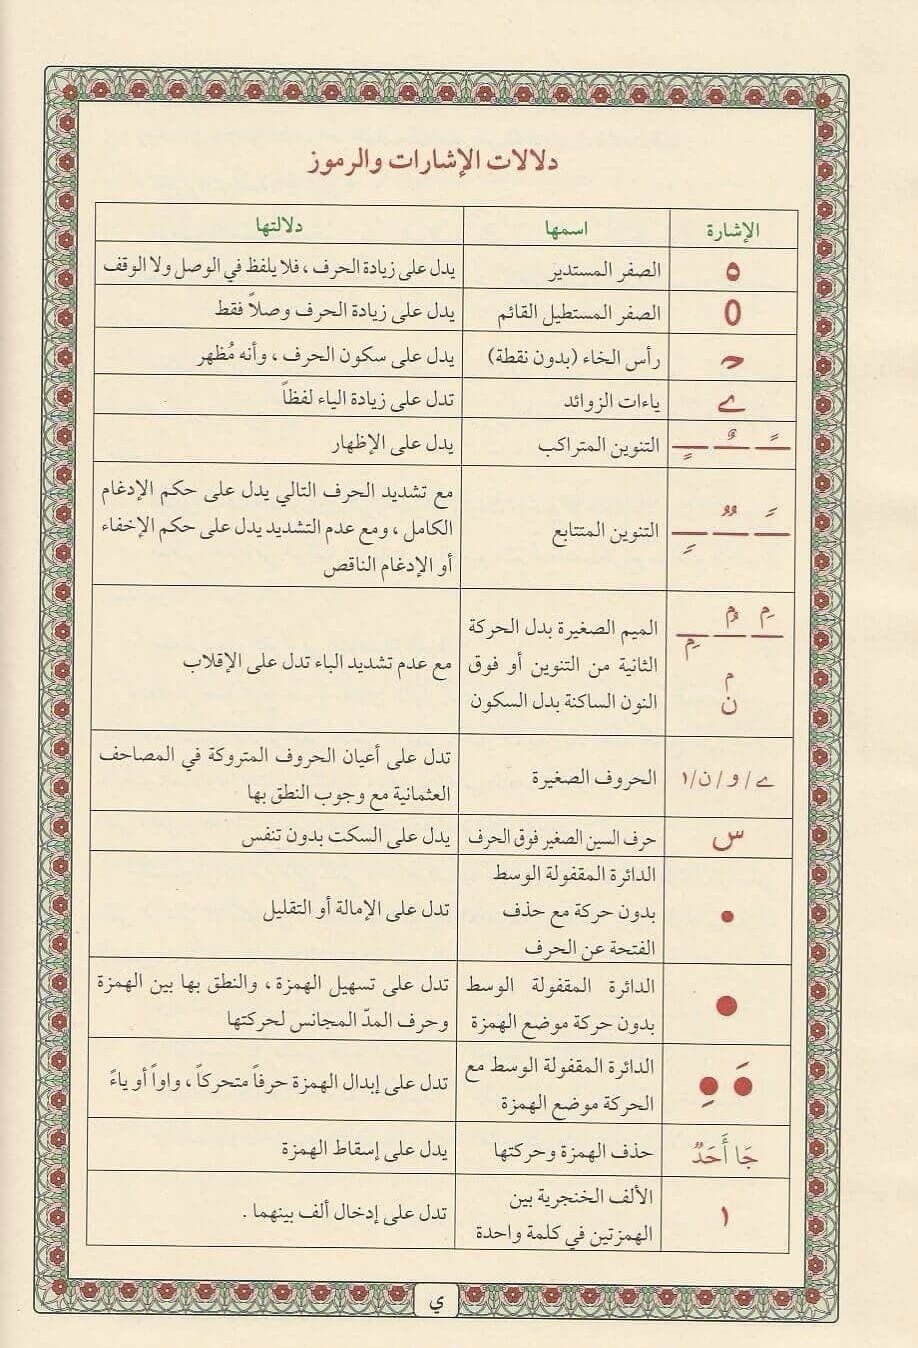 دلالات الإشارات والرموز
الإشارة اسمها دلالتها
ه الصفر المستدير يدل على زيادة الحرف ، فلا يلفظ في الوصل ولا الوقف
0 الصفر المستطيل القائم يدل على زيادة الحرف وصلاً فقط
رأس الخاء (بدون نقطة) يدل على سكون الحرف ، وأنه مُظهر
ے ياءات الزوائد تدل على زيادة الياء لفظاً
ـً ـٌ ـٍ التنوين المتراكب يدل على الإظهار
التنوين المتتابع
مع تشديد الحرف التالي يدل على حكم الإدغام
الكامل ، ومع عدم التشديد يدل على حكم الإخفاء
أو الإدغام الناقص
م م م
م
ن
الميم الصغيرة بدل الحركة
الثانية من التنوين أو فوق
النون الساكنة بدل السكون
مع عدم تشديد الباء تدل على الإقلاب
ے / و / ن / ا الحروف الصغيرة
تدل على أعيان الحروف المتروكة في المصاحف
العثمانية مع وجوب النطق بها
س حرف السين الصغير فوق الحرف يدل على السكت بدون تنفس
●
الدائرة المقفولة الوسط
بدون حركة مع حذف
الفتحة عن الحرف
تدل على الإمالة أو التقليل
●
الدائرة المقفولة الوسط
بدون حركة موضع الهمزة
تدل على تسهيل الهمزة ، والنطق بها بين الهمزة
وحرف المدّ المجانس لحركتها
●َ ●ِ
الدائرة المقفولة الوسط مع
الحركة موضع الهمزة
تدل على إبدال الهمزة حرفاً متحركاً ، واواً أو ياءً
جَا أَحَدٌ حذف الهمزة وحركتها يدل على إسقاط الهمزة
ا
الألف الخنجرية بين
الهمزتين في كلمة واحدة
تدل على إدخال ألف بينهما .
ي